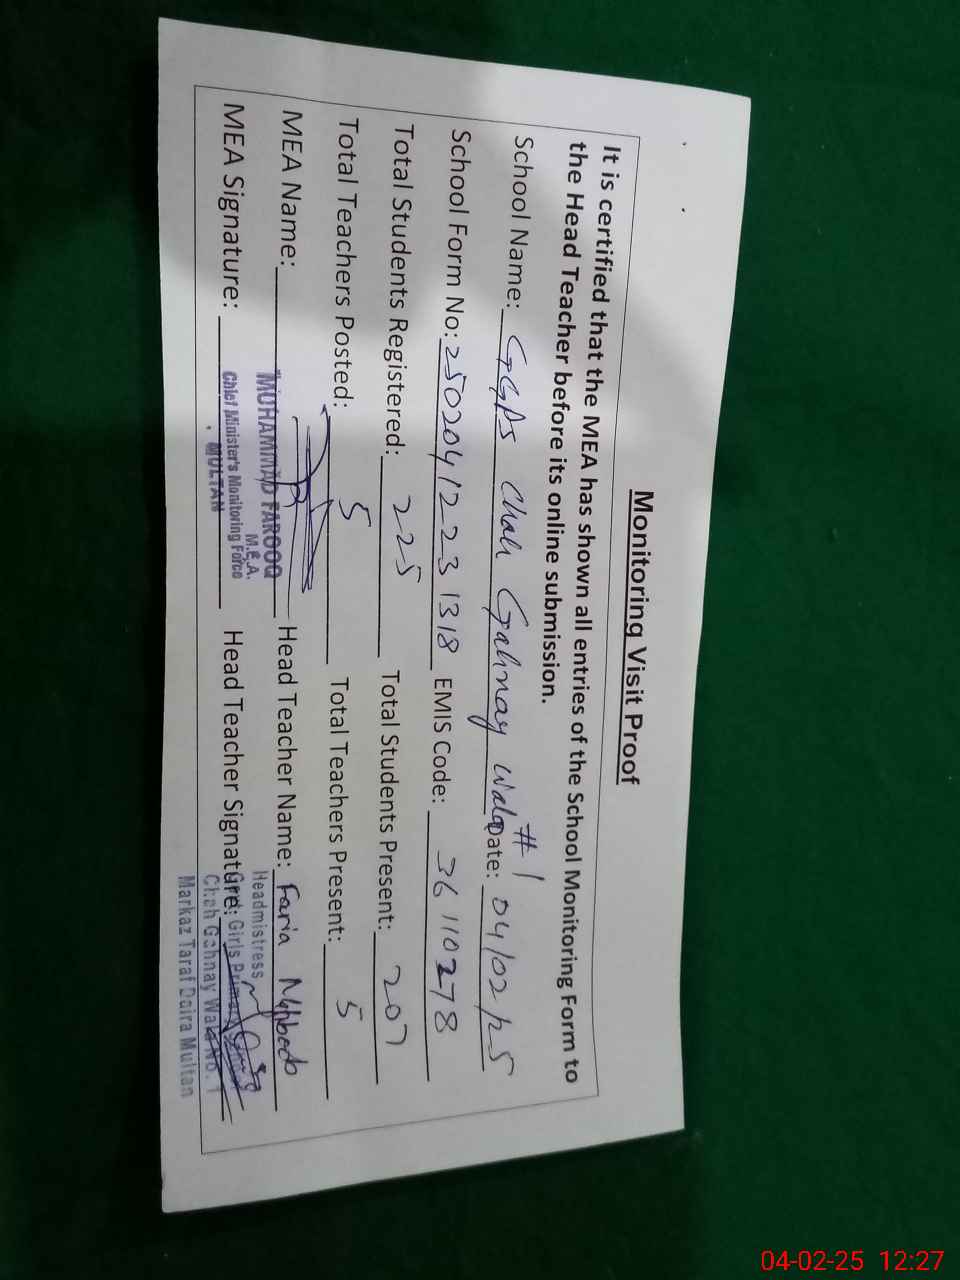 Monitoring Visit Proof
It is certified that the MEA has shown all entries of the School Monitoring Form to
the Head Teacher before its online submission.
School Name: GGPS Chah Gahnay Wala #1 Date: 04/02/25
School Form No: 25020412231318 EMIS Code: 36110278
Total Students Registered: 225 Total Students Present: 207
Total Teachers Posted: 5 Total Teachers Present: 5
MEA Name: Head Teacher Name: Faria
MUHAMMAD FAROOQ
M.E.A.
Chief Minister's Monitoring Force
MULTAN
MEA Signature: Head Teacher Signature:
Headmistress
Govt. Girls Primary School
Chah Gahnay Wala No. 1
Markaz Taraf Daira Multan
04-02-25 12:27